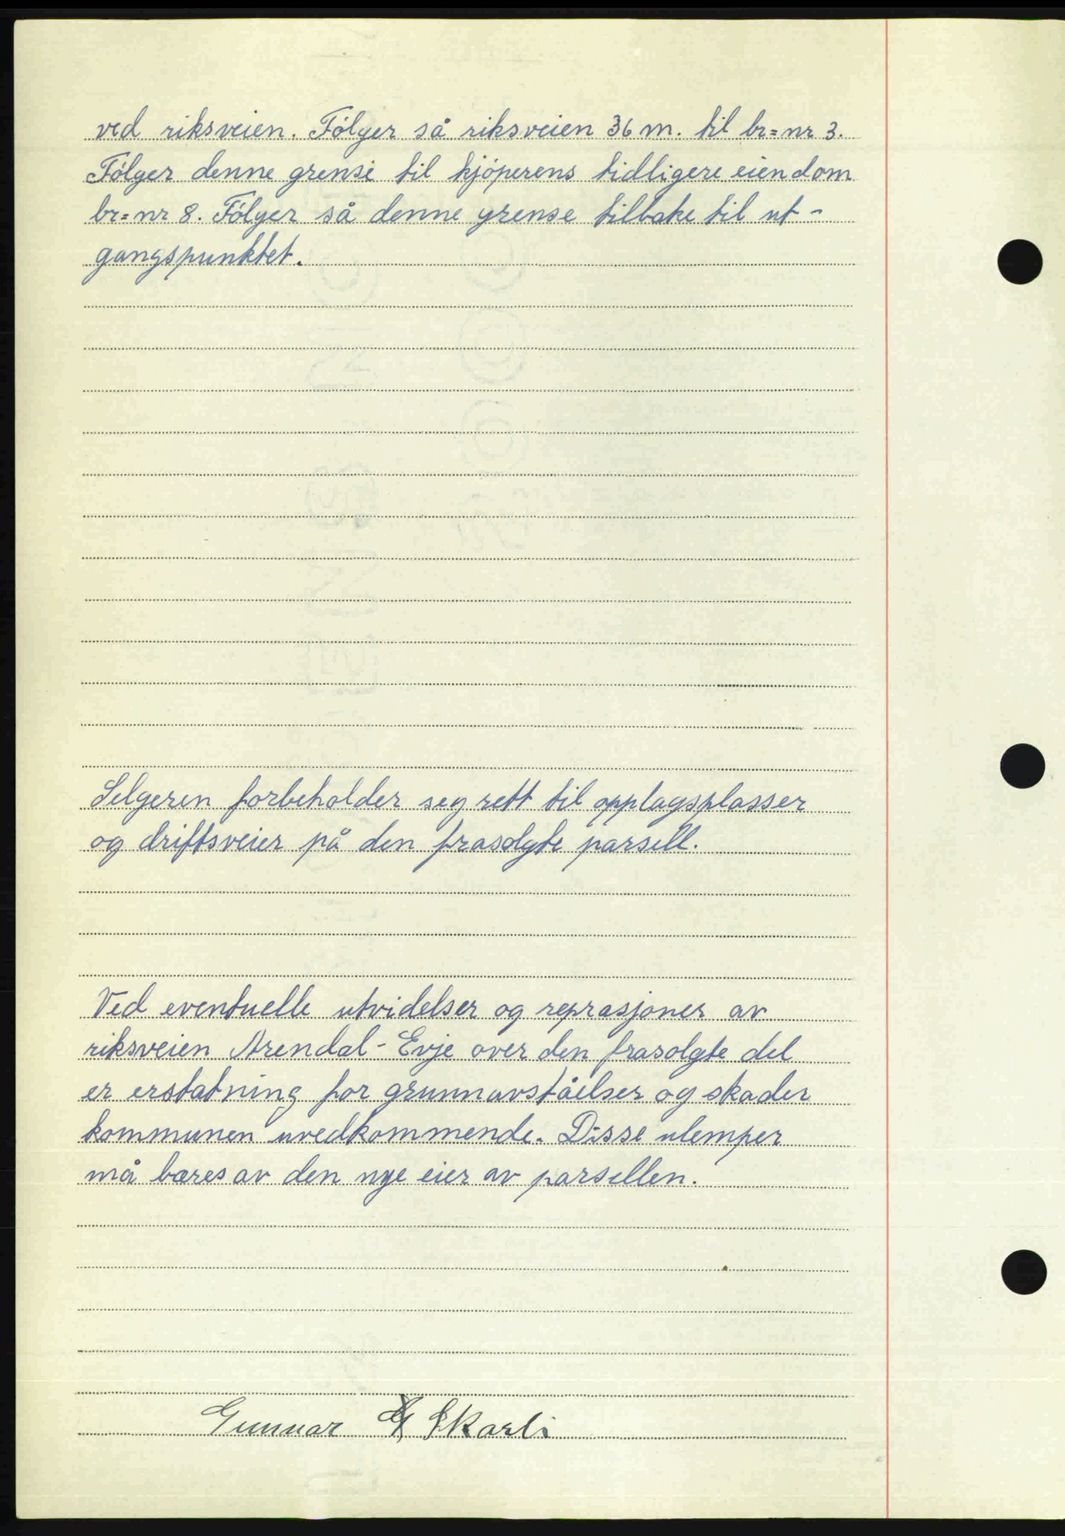 ved riksveien. Følger så riksveien 36 m. til br=nr 3.
Følger denne grense til kjøperens tidligere eiendom
br=nr 8. Følger så denne grense tilbake til ut-
gangspunktet.
Selgeren forbeholder seg rett til opplagsplasser
og driftsveier på den frasolgte parsell.
Ved eventuelle utvidelser og reprasjoner av
riksveien Arendal-Evje over den frasolgte del
er erstatning for grunnavståelser og skader
kommunen uvedkommende. Disse ulemper
må bæres av den nye eier av parsellen.
Gunnar Skarli